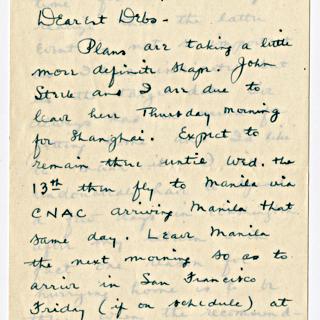 Dearest Debs -
Plans are taking a little
more definite shape. John
and I are due to
leave here Thursday morning
for Shanghai. Expect to
remain there until Wed. the
13th then fly to Manila via
CNAC arriving Manila that
same day. Leave Manila
the next morning so as to
arrive in San Francisco
Friday (if on schedule) at